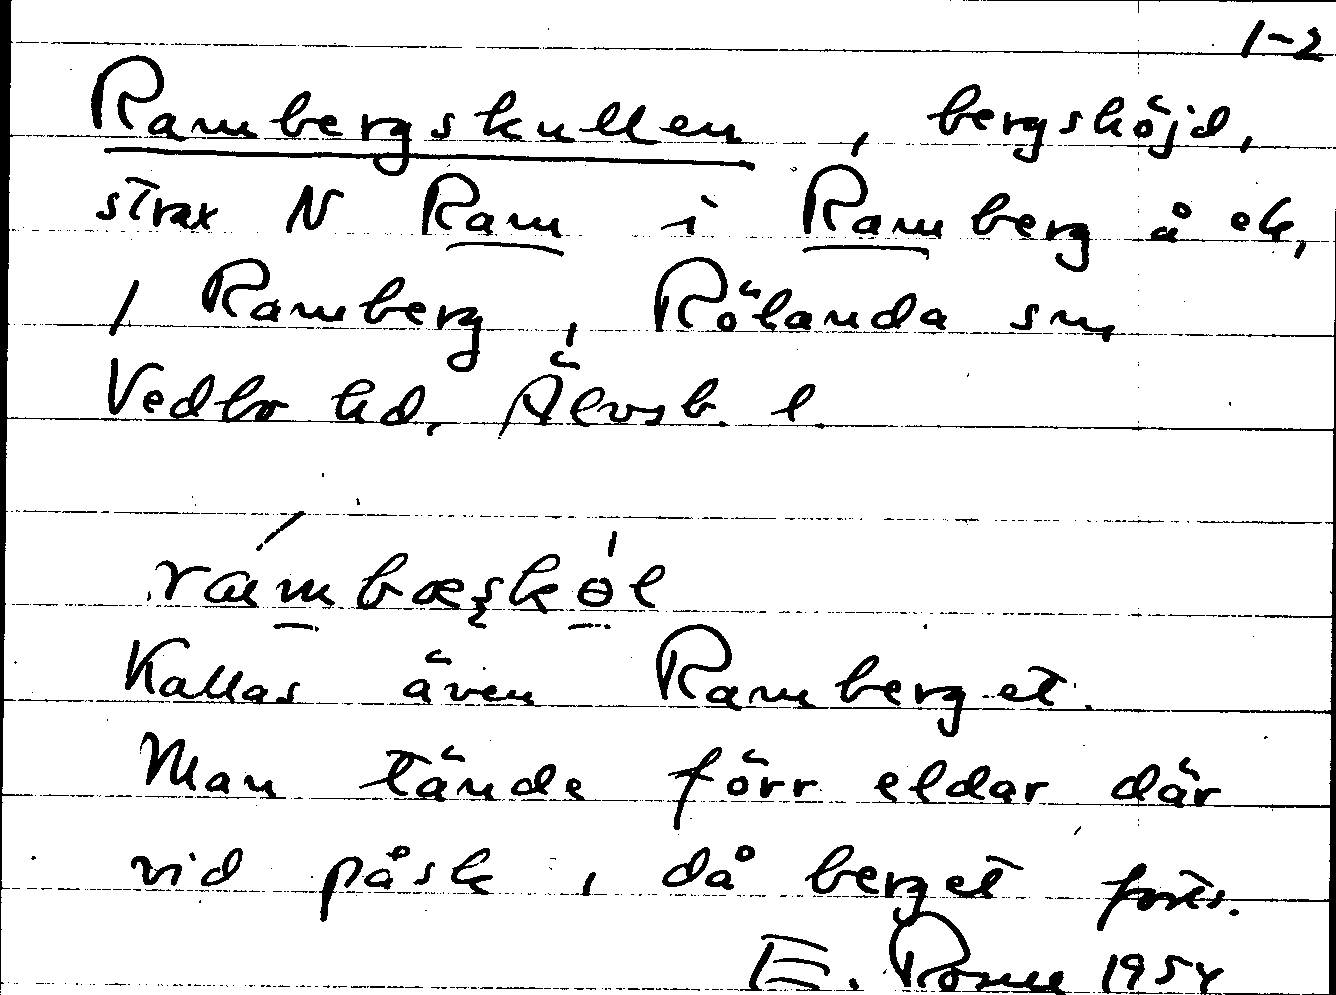 1-2
Rambergskullen, bergshöjd,
strax N Ram i Ramberg å ek,
/ Ramberg, Rölanda sn,
Vedbo hd, Älvsb. l.
Kallas även Ramberget.
Man tände förr eldar där
vid påsk, då berget forts.
E. Rosell 1954